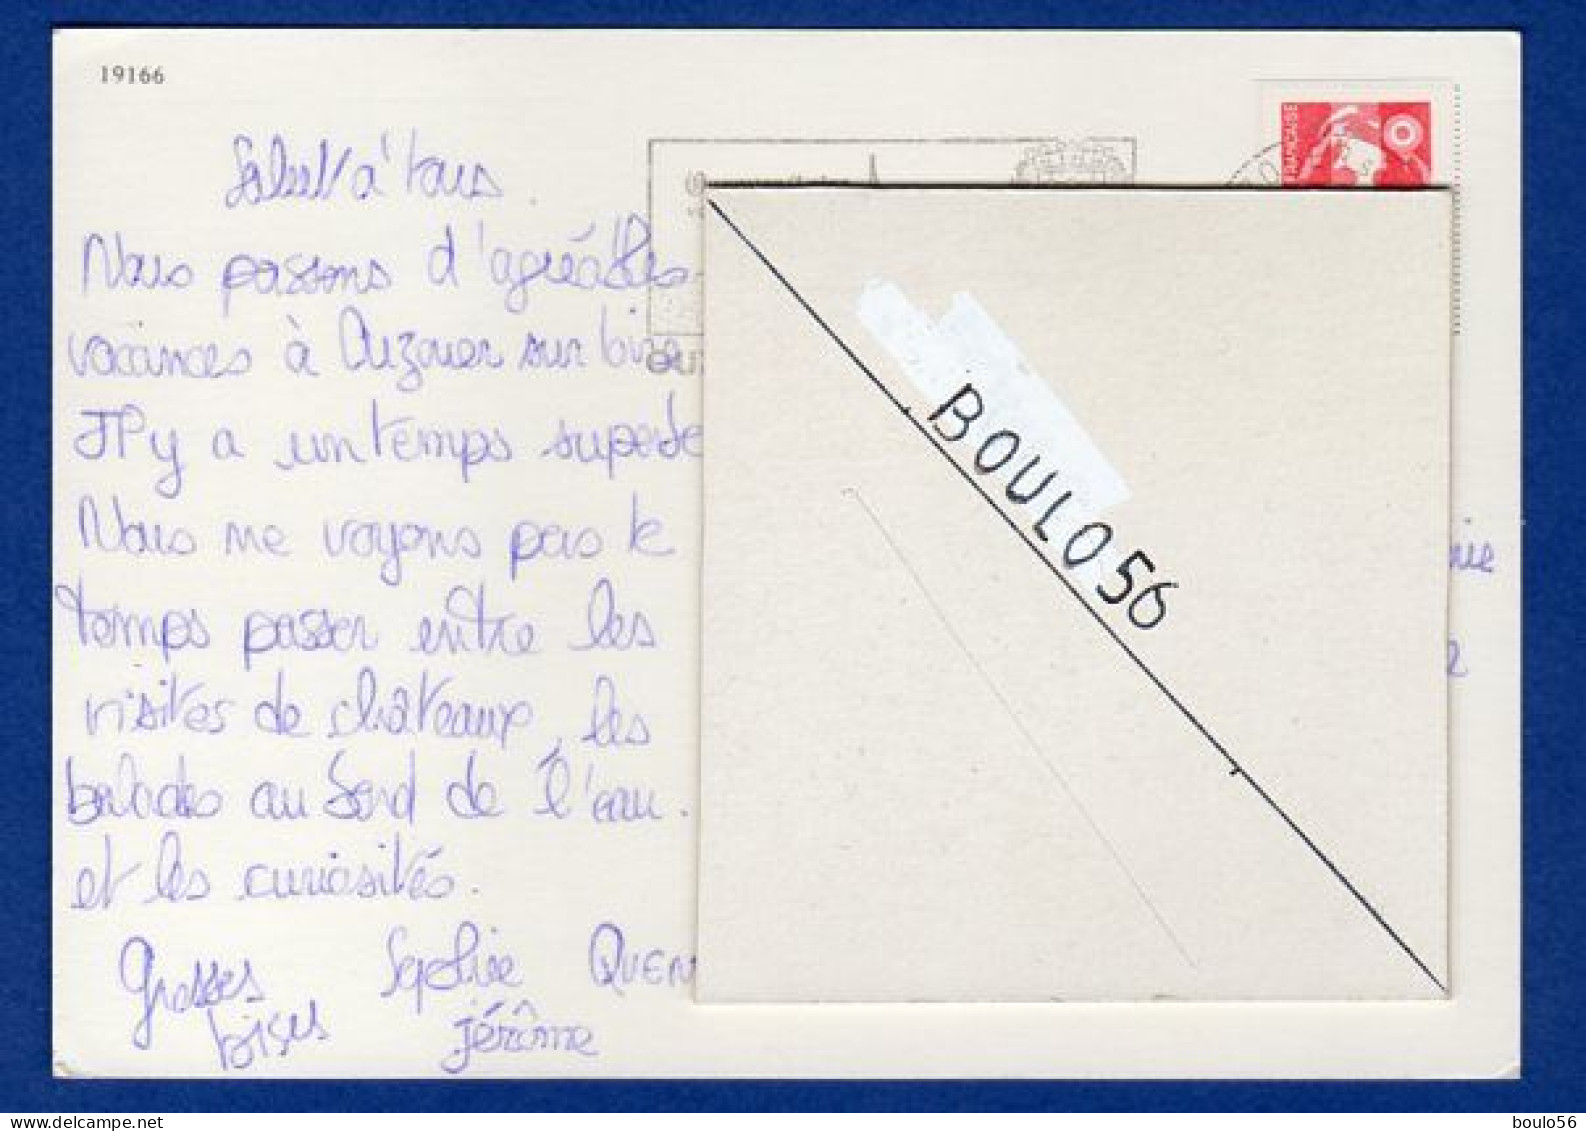 19166
FRANÇAISE
Salut à tous
Nous passons d'agréables
vacances à Ouzouer sur Loire
Il y a un temps superbe
Nous ne voyons pas le
temps passer entre les
visites de châteaux, les
balades au bord de l'eau.
et les curiosités.
Grosses
bises
Sophie
QUEN
Jérôme
OUZ
BOULO56
nie
boulo56